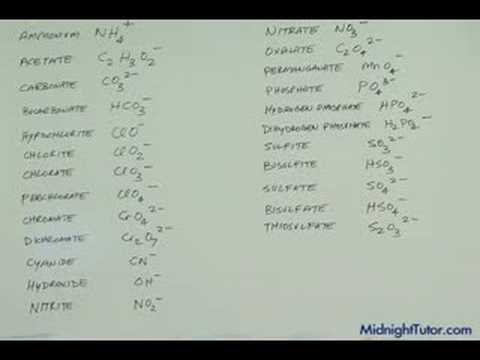 AMMONIUM NH₄⁺
ACETATE C₂H₃O₂⁻
CARBONATE CO₃²⁻
BICARBONATE HCO₃⁻
HYPOCHLORITE ClO⁻
CHLORITE ClO₂⁻
CHLORATE ClO₃⁻
PERCHLORATE ClO₄⁻
CHROMATE CrO₄²⁻
DICHROMATE Cr₂O₇²⁻
CYANIDE CN⁻
HYDROXIDE OH⁻
NITRITE NO₂⁻
NITRATE NO₃⁻
OXALATE C₂O₄²⁻
PERMANGANATE MnO₄⁻
PHOSPHATE PO₄³⁻
HYDROGEN PHOSPHATE HPO₄²⁻
DIHYDROGEN PHOSPHATE H₂PO₄⁻
SULFITE SO₃²⁻
BISULFITE HSO₃⁻
SULFATE SO₄²⁻
BISULFATE HSO₄⁻
THIOSULFATE S₂O₃²⁻
MidnightTutor.com